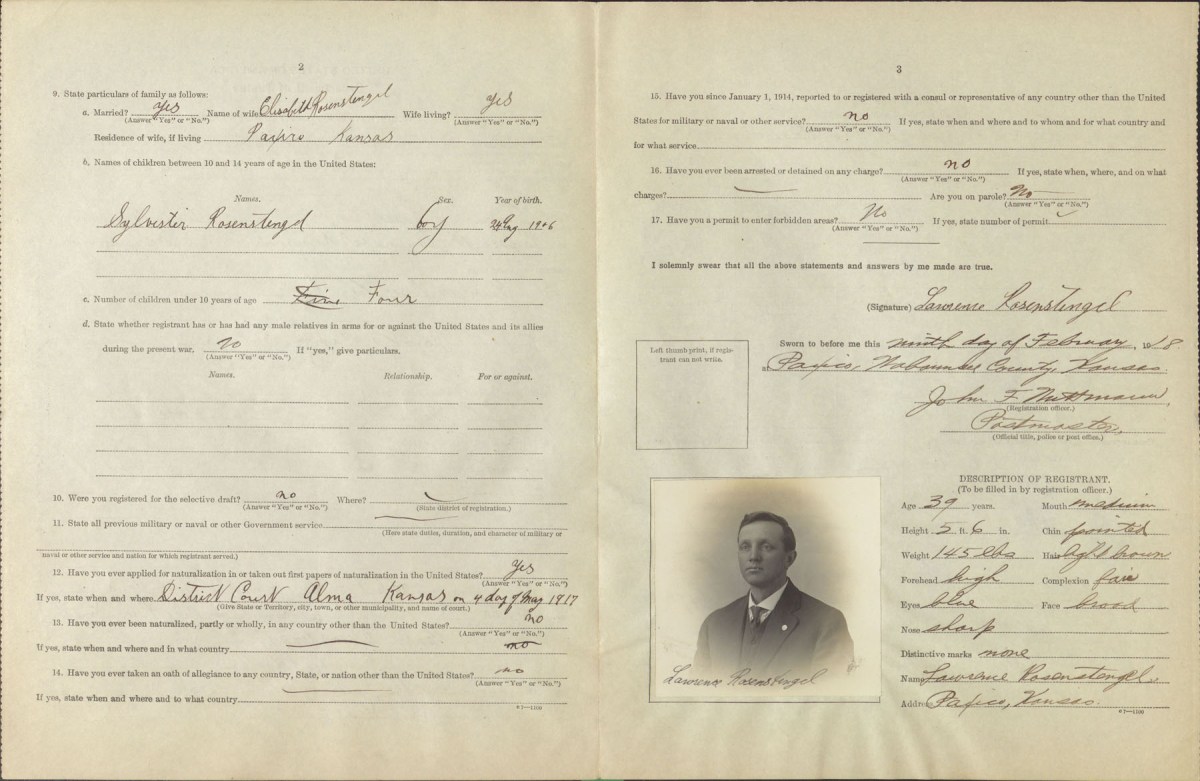 2
9. State particulars of family as follows:
a. Married? Yes Name of wife Elisabeth Rosenstengel Wife living? Yes
(Answer "Yes" or "No.") (Answer "Yes" or "No.")
Residence of wife, if living Paxico Kansas
b. Names of children between 10 and 14 years of age in the United States:
Names. Sex. Year of birth.
Sylvester Rosenstengel boy 24 Aug 1906
c. Number of children under 10 years of age Five Four
d. State whether registrant has or has had any male relatives in arms for or against the United States and its allies
during the present war, No If "yes," give particulars.
(Answer "Yes" or "No.")
Names. Relationship. For or against.
10. Were you registered for the selective draft? no Where?
(Answer "Yes" or "No.") (State district of registration.)
11. State all previous military or naval or other Government service
(Here state duties, duration, and character of military or
naval or other service and nation for which registrant served.)
12. Have you ever applied for naturalization in or taken out first papers of naturalization in the United States? Yes
(Answer "Yes" or "No.")
If yes, state when and where District Court Alma Kansas on 4 day of May 1917
(Give State or Territory, city, town, or other municipality, and name of court.)
13. Have you ever been naturalized, partly or wholly, in any country other than the United States? no
(Answer "Yes" or "No.")
If yes, state when and where and in what country no
14. Have you ever taken an oath of allegiance to any country, State, or nation other than the United States? no
(Answer "Yes" or "No.")
If yes, state when and where and to what country
67—1109
3
15. Have you since January 1, 1914, reported to or registered with a consul or representative of any country other than the United
States for military or naval or other service? no If yes, state when and where and to whom and for what country and
(Answer "Yes" or "No.")
for what service
16. Have you ever been arrested or detained on any charge? no If yes, state when, where, and on what
(Answer "Yes" or "No.")
charges? Are you on parole? No
(Answer "Yes" or "No.")
17. Have you a permit to enter forbidden areas? No If yes, state number of permit
(Answer "Yes" or "No.")
I solemnly swear that all the above statements and answers by me made are true.
(Signature) Lawrence Rosenstengel
Left thumb print, if regis-
trant can not write.
Sworn to before me this ninth day of February, 1918
at Paxico, Wabaunsee County, Kansas.
John F. Nuttmann,
(Registration officer.)
Postmaster,
(Official title, police or post office.)
Lawrence Rosenstengel
DESCRIPTION OF REGISTRANT.
(To be filled in by registration officer.)
Age 39 years. Mouth medium
Height 5 ft. 6 in. Chin pointed
Weight 145 lbs Hair light brown
Forehead high Complexion fair
Eyes blue Face broad
Nose sharp
Distinctive marks none
Name Lawrence Rosenstengel
Address Paxico, Kansas.
67—1109